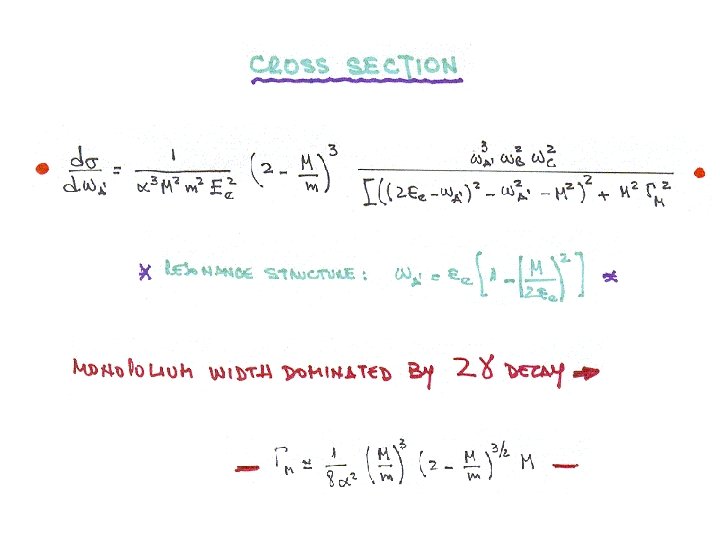 CROSS SECTION
• dσ/dω_A' = 1/(α³M²m²E_e²) (2 - M/m)³ ω_A'³ ω_B² ω_C² / [((2E_e - ω_A')² - ω_A'² - M²)² + M² Γ_M² •
* RESONANCE STRUCTURE: ω_A' = E_e [1 - [M/2E_e]²] *
MONOPOLIUM WIDTH DOMINATED BY 2γ DECAY →
— Γ_M ≃ 1/(8α²) (M/m)³ (2 - M/m)^3/2 M —